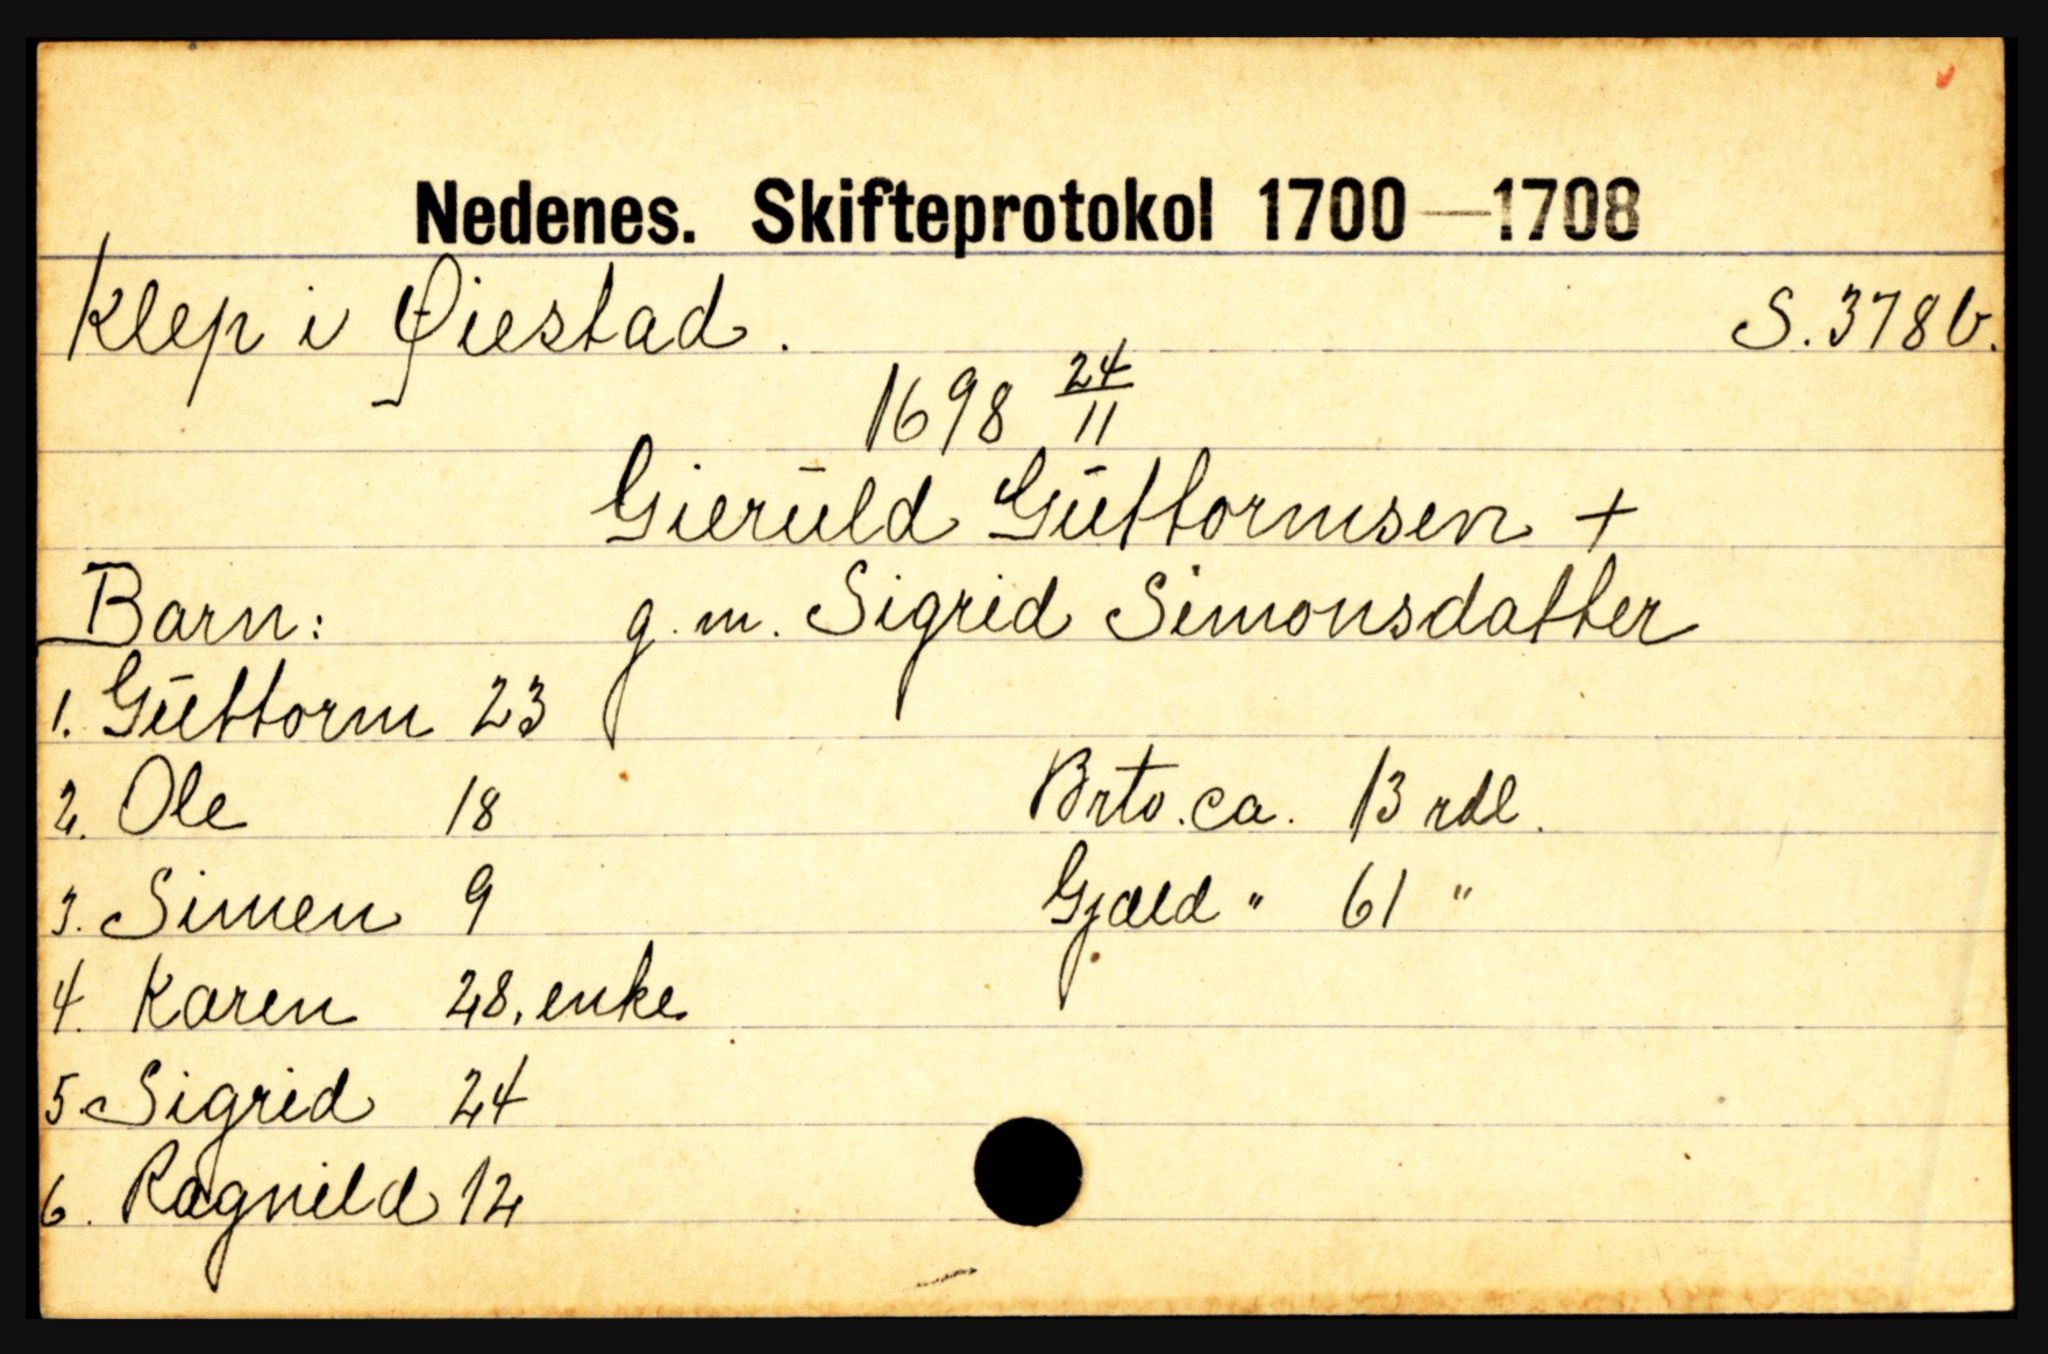 Nedenes. Skifteprotokol 1700—1708
Klep i Øiestad. S. 378b.
1698 24/11
Gieruld Guttormsen +
Barn: g. m. Sigrid Simonsdatter
1. Guttorm 23
2. Ole 18 Brto. ca. 13 rdl.
3. Simen 9 Gjæld " 61 "
4. Karen 28, enke
5. Sigrid 24
6. Ragnild 12